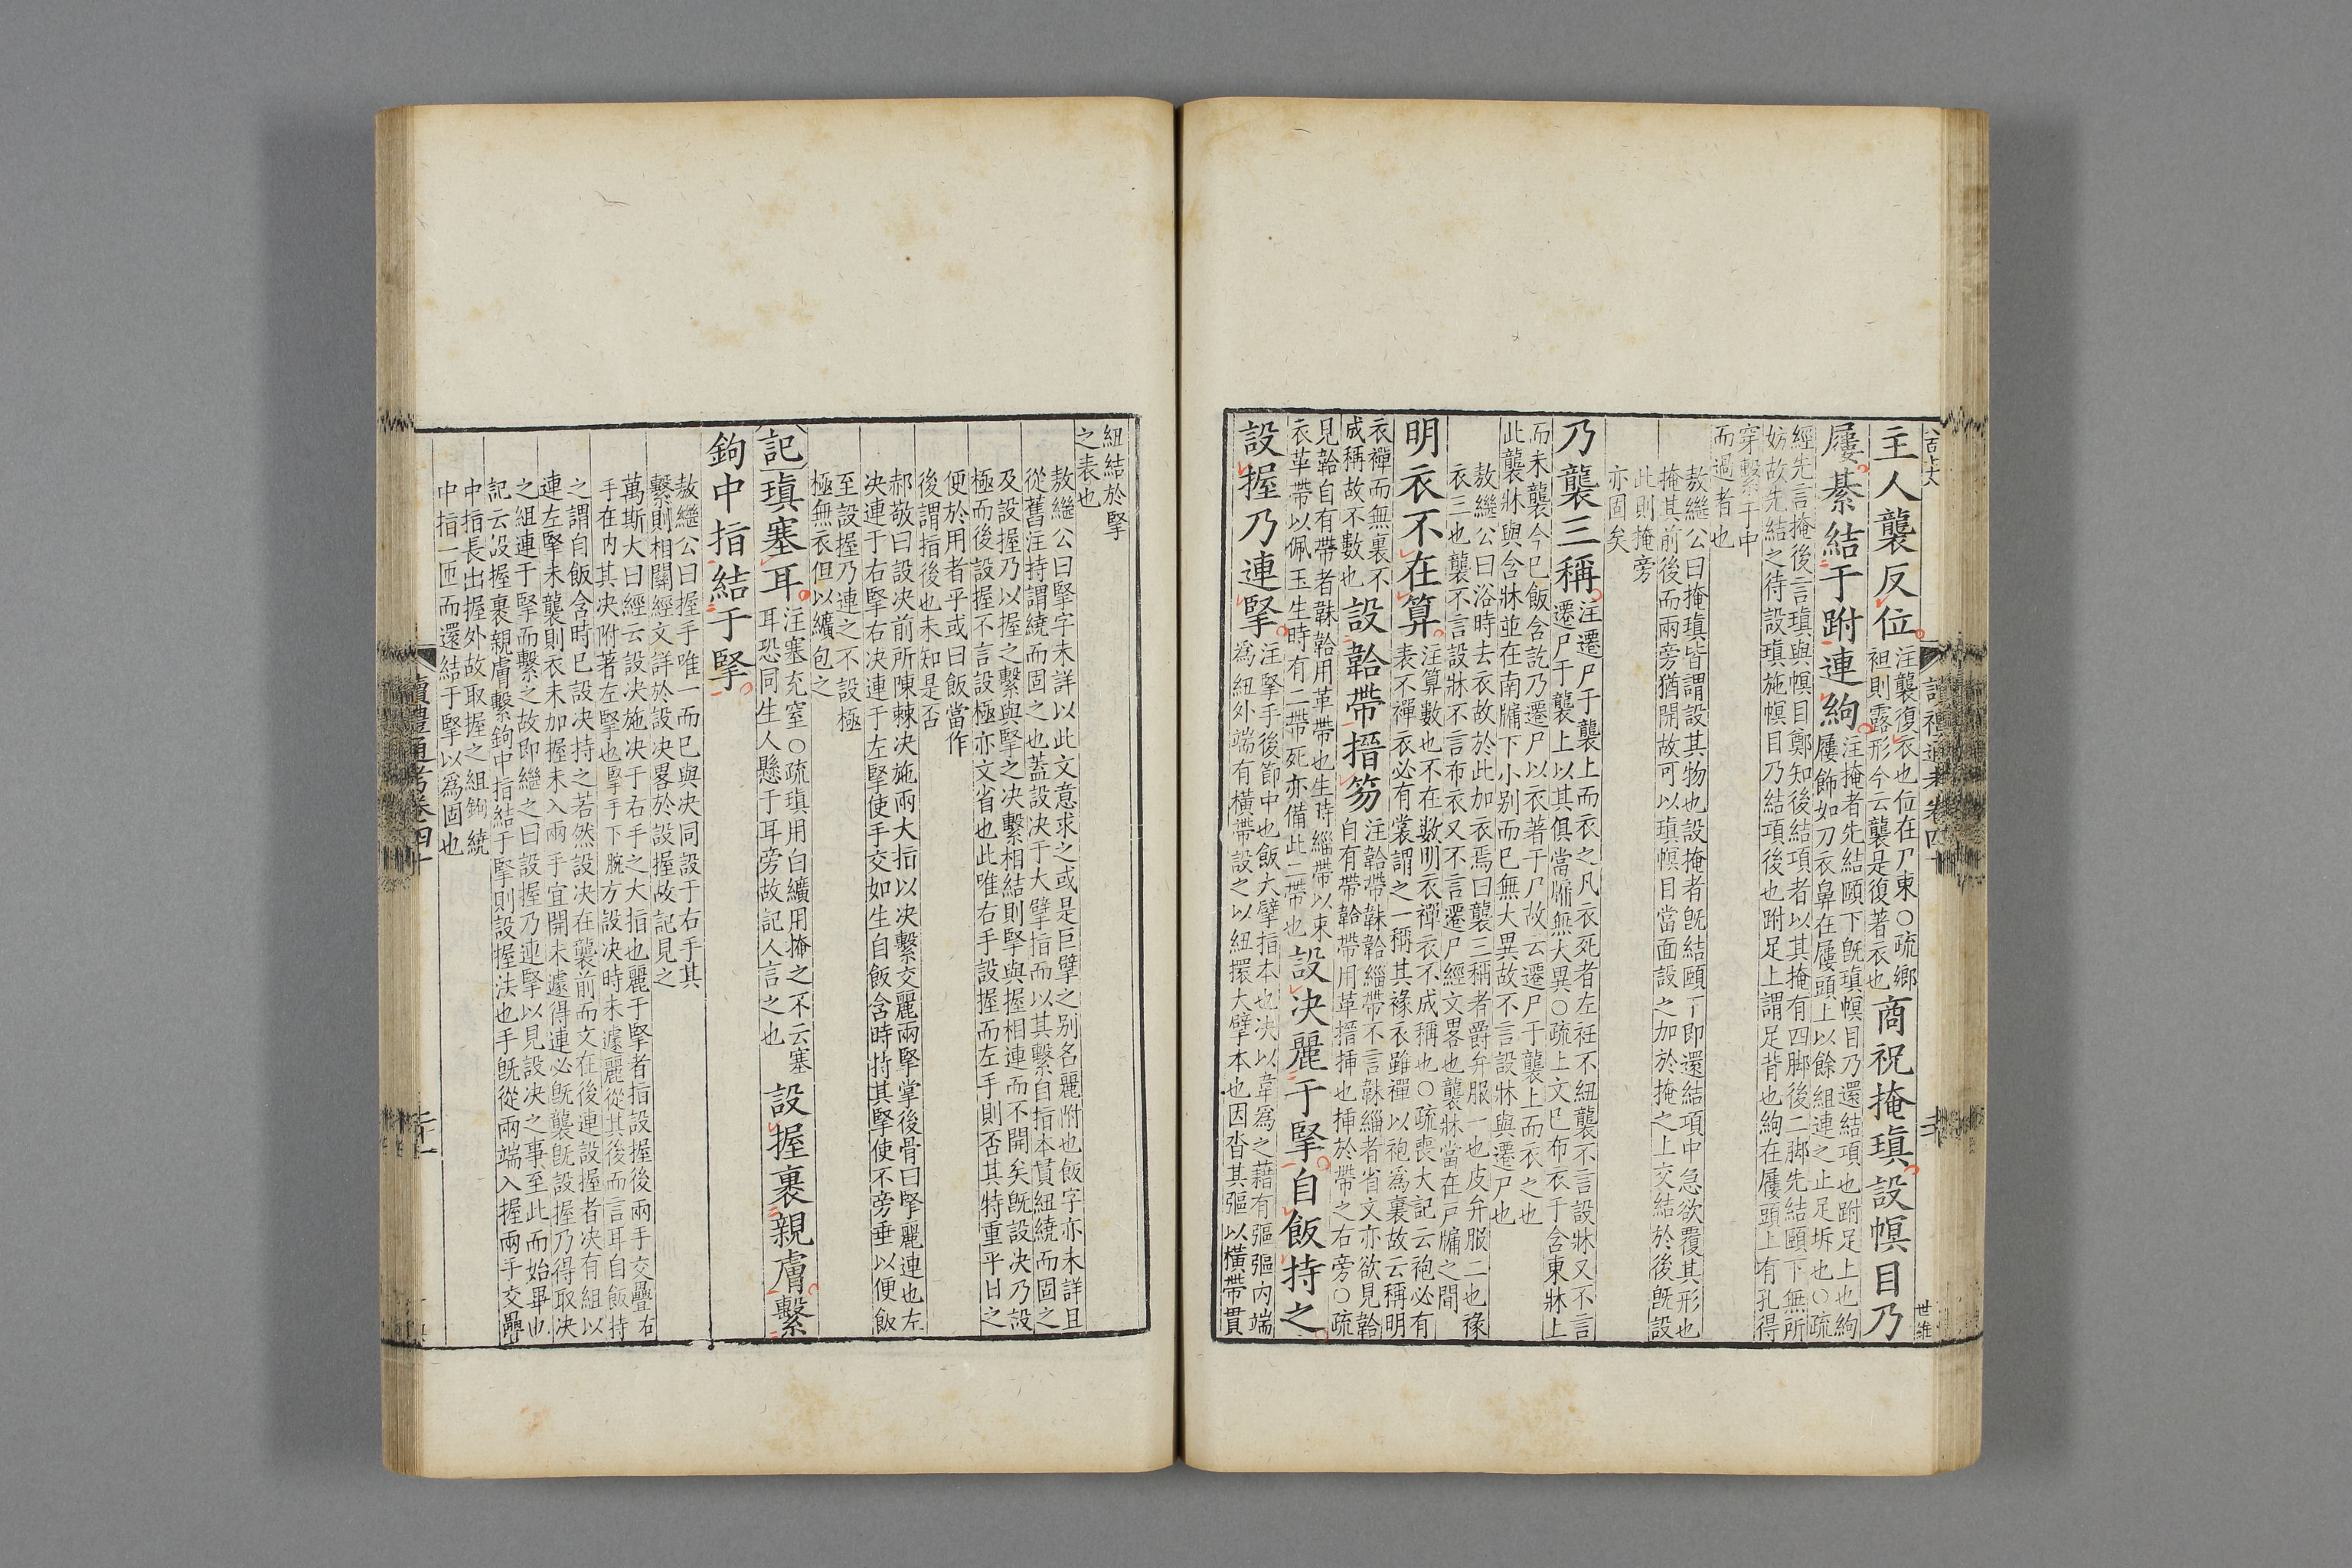 主人襲反位注襲復衣也位在尸東○疏鄉
袒則露形今云襲是復著衣也商祝掩瑱設幎目乃
屨綦結于跗連絇注掩者先結頤下旣瑱幎目乃還結項也跗足上也絇
屨飾如刀衣鼻在屨頭上以餘組連之止足坼也○疏
經先言掩後言瑱與幎目鄭知後結項者以其掩有四脚後二脚先結頤下無所
妨故先結之待設瑱施幎目乃結項後也跗足上謂足背也絇在屨頭上有孔得
穿繫于中
而過者也
敖繼公曰掩瑱皆謂設其物也設掩者旣結頤下即還結項中急欲覆其形也
掩其前後而兩旁猶開故可以瑱幎目當面設之加於掩之上交結於後旣設
此則掩旁
亦固矣
乃襲三稱注遷尸于襲上而衣之凡衣死者左衽不紐襲不言設牀又不言
遷尸于襲上以其俱當牖無大異○疏上文已布衣于含東牀上
而未襲今已飯含訖乃遷尸以衣著于尸故云遷尸于襲上而衣之也
此襲牀與含牀並在南牖下小別而已無大異故不言設牀與遷尸也
敖繼公曰浴時去衣故於此加衣焉曰襲三稱者爵弁服一也皮弁服二也褖
衣三也襲不言設牀不言布衣又不言遷尸經文畧也襲牀當在尸牖之間
明衣不在算注算數也不在數明衣襌衣不成稱也○疏喪大記云袍必有
表不襌衣必有裳謂之一稱其褖衣雖襌以袍爲裏故云稱明
衣襌而無裏不
成稱故不數也設韐帶搢笏注韐帶韎韐緇帶不言韎緇者省文亦欲見韐
自有帶韐帶用革搢插也插於帶之右旁○疏
見韐自有帶者韎韐用革帶也生時緇帶以束
衣革帶以佩玉生時有二帶死亦備此二帶也設決麗于掔自飯持之
設握乃連掔注掔手後節中也飯大擘指本也決以韋爲之藉有彄彄內端
爲紐外端有橫帶設之以紐擐大擘本也因沓其彄以橫帶貫
紐結於掔
之表也
敖繼公曰掔字未詳以此文意求之或是巨擘之別名麗附也飯字亦未詳且
從舊注持謂繞而固之也蓋設決于大擘指而以其繫自指本貫紐繞而固之
及設握乃以握之繫與掔之決繫相結則掔與握相連而不開矣旣設決乃設
極而後設握不言設極亦文省也此唯右手設握而左手則否其特重平日之
便於用者乎或曰飯當作
後後謂指後也未知是否
郝敬曰設決前所陳棘決施兩大指以決繫交麗兩掔掌後骨曰掔麗連也左
決連于右掔右決連于左掔使手交如生自飯含時持其掔使不旁垂以便飯
至設握乃連之不設極
極無衣但以纊包之
記瑱塞耳注塞充窒○疏瑱用白纊用掩之不云塞
耳恐同生人懸于耳旁故記人言之也設握裹親膚繫
鉤中指結于掔
敖繼公曰握手唯一而已與決同設于右手其
繫則相關經文詳於設決畧於設握故記見之
萬斯大曰經云設決施決于右手之大指也麗于掔者指設握後兩手交疊右
手在內其決附著左掔也掔手下腕方設決時未遽麗從其後而言耳自飯持
之謂自飯含時已設決持之若然設決在襲前而文在後連設握者決有組以
連左掔未襲則衣未加握未入兩手宜開未遽得連必旣襲旣設握乃得取決
之組連于掔而繫之故即繼之曰設握乃連掔以見設決之事至此而始畢也
記云設握裹親膚繫鉤中指結于掔則設握法也手旣從兩端入握兩手交疊
中指長出握外故取握之組鉤繞
中指一匝而還結于掔以爲固也
讀禮通考卷四十